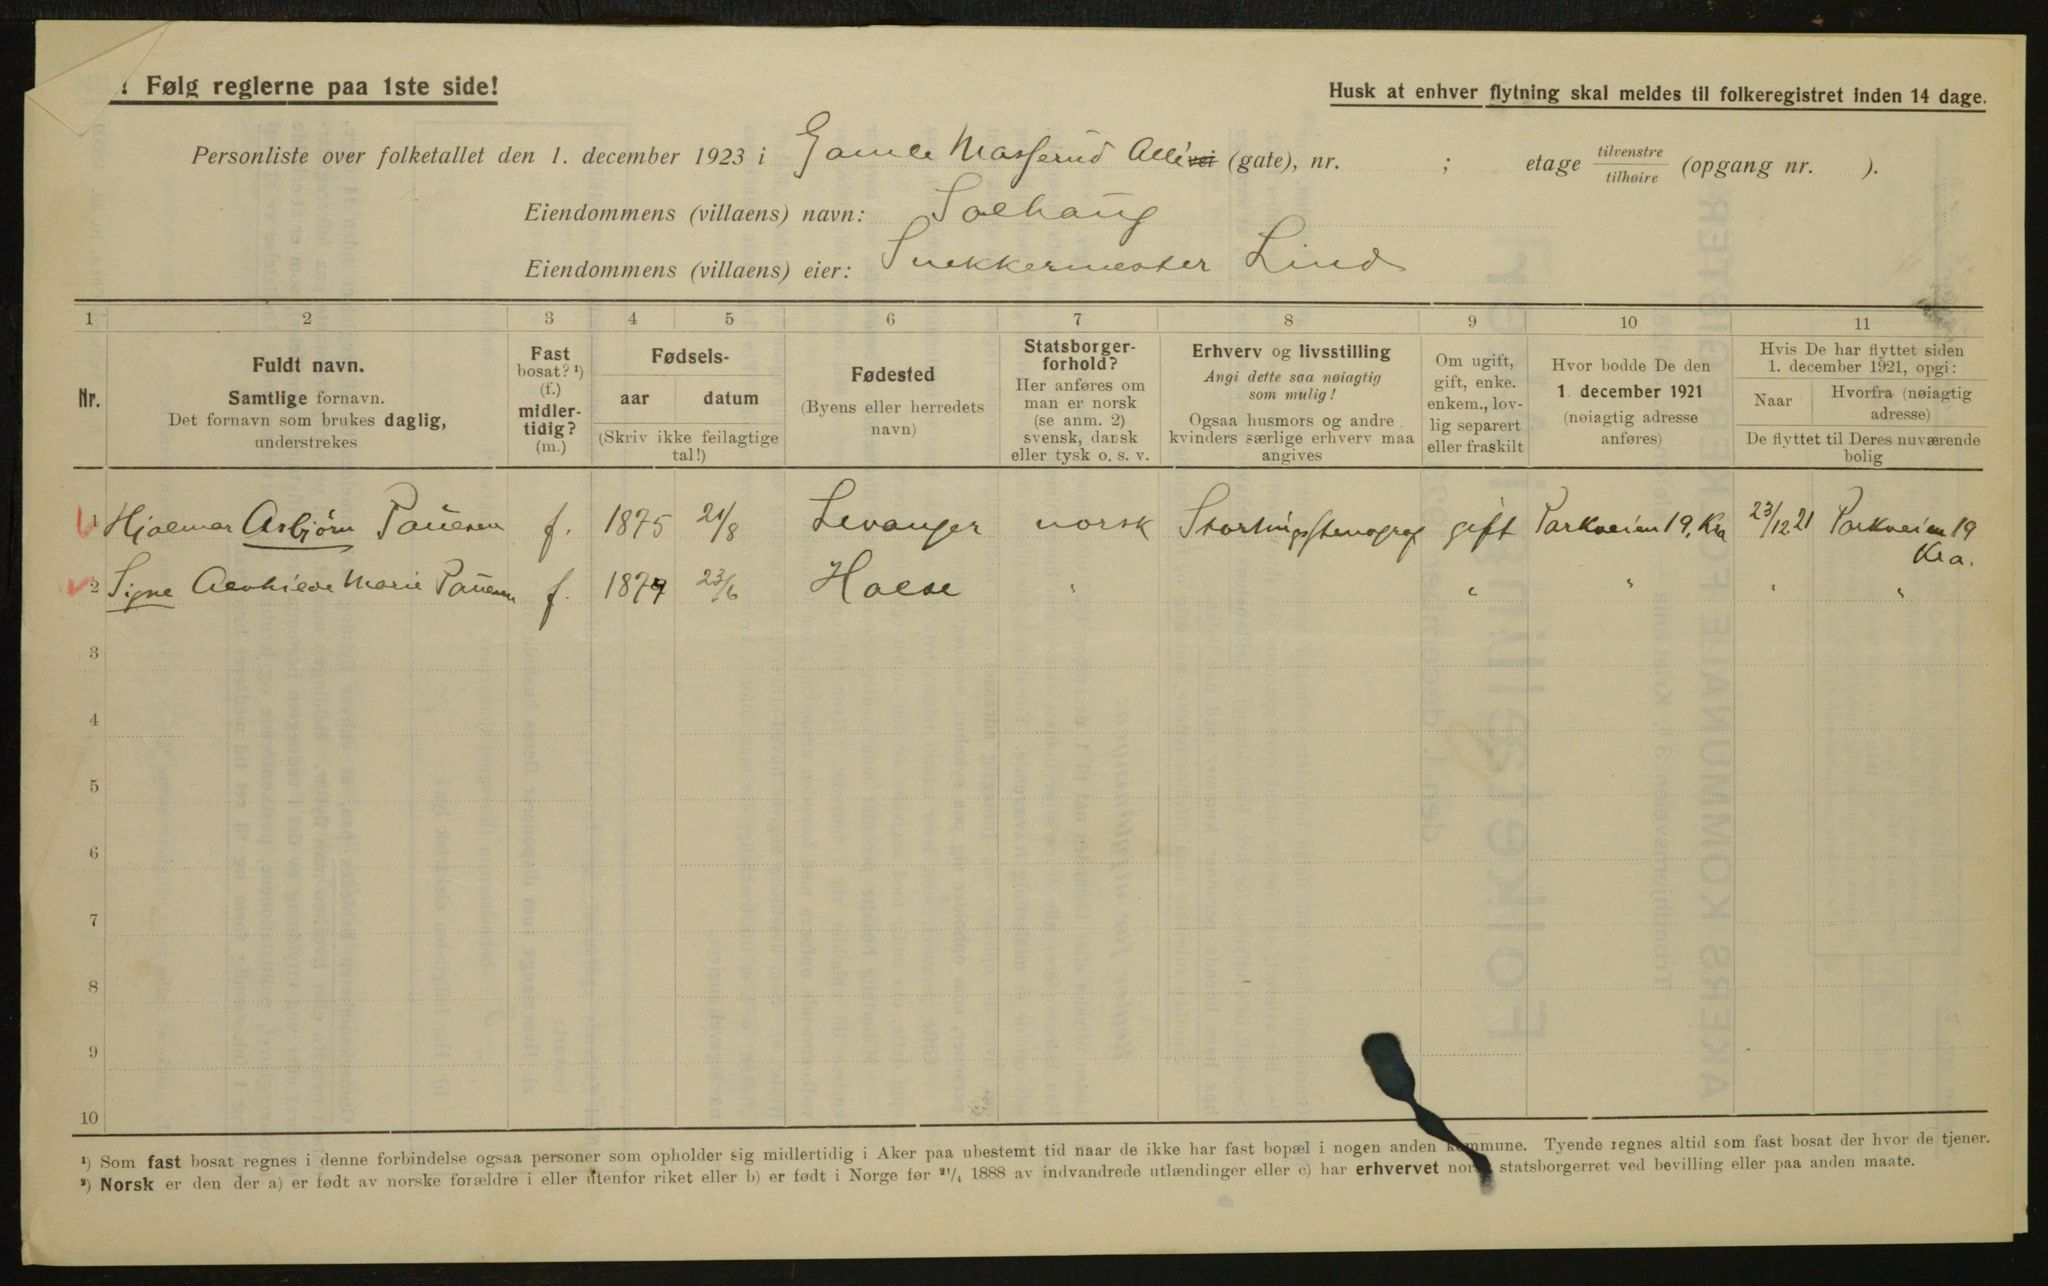 ! Følg reglerne paa 1ste side!
Husk at enhver flytning skal meldes til folkeregistret inden 14 dage.
Personliste over folketallet den 1. december 1923 i Gamle Madserud Allé vei (gate), nr. ; etage tilvenstre tilhøire (opgang nr. ).
Eiendommens (villaens) navn: Solhaug
Eiendommens (villaens) eier: Snekkermester Lind
1 2 3 4 5 6 7 8 9 10 11
Nr.
Fuldt navn.
Samtlige fornavn.
Det fornavn som brukes daglig,
understrekes
Fast
bosat? ¹)
(f.)
midler-
tidig?
(m.)
Fødsels-
aar datum
(Skriv ikke feilagtige
tal!)
Fødested
(Byens eller herredets
navn)
Statsborger-
forhold?
Her anføres om
man er norsk
(se anm. 2)
svensk, dansk
eller tysk o. s. v.
Erhverv og livsstilling
Angi dette saa nøiagtig
som mulig!
Ogsaa husmors og andre
kvinders særlige erhverv maa
angives
Om ugift,
gift, enke.
enkem., lov-
lig separert
eller fraskilt
Hvor bodde De den
1. december 1921
(nøiagtig adresse
anføres)
Hvis De har flyttet siden
1. december 1921, opgi:
Naar
Hvorfra (nøiagtig
adresse)
De flyttet til Deres nuværende
bolig
1 Hjalmar Asbjørn Paulsen f. 1875 21/8 Levanger norsk Stortingsstenograf gift Parkveien 19, Kra 23/12 21 Parkveien 19
Kra.
2 Signe Alvhilde Marie Paulsen f. 1879 23/6 Halse " " " " "
3
4
5
6
7
8
9
10
¹) Som fast bosat regnes i denne forbindelse ogsaa personer som opholder sig midlertidig i Aker paa ubestemt tid naar de ikke har fast bopæl i nogen anden kommune. Tyende regnes altid som fast bosat der hvor de tjener.
²) Norsk er den der a) er født av norske forældre i eller utenfor riket eller b) er født i Norge før ²¹/₄ 1888 av indvandrede utlændinger eller c) har erhvervet norsk statsborgerret ved bevilling eller paa anden maate.